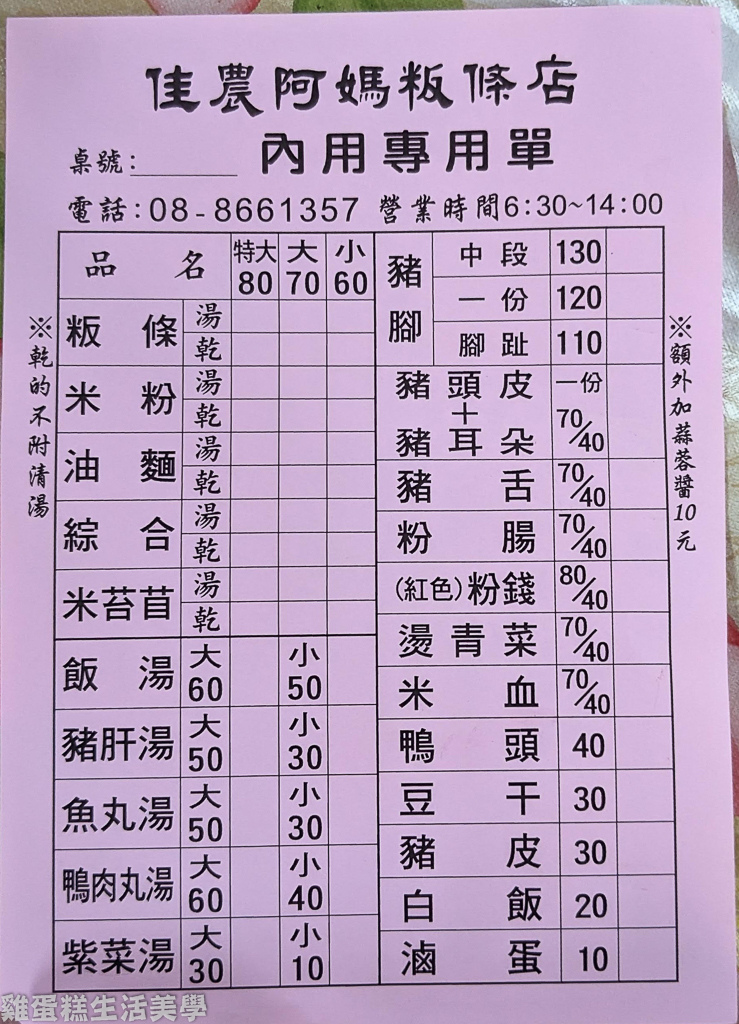 佳農阿媽粄條店
桌號：
內用專用單
電話：08-8661357 營業時間6:30~14:00
※乾的不附清湯
品名 特大80 大70 小60
粄條 湯 乾
米粉 湯 乾
油麵 湯 乾
綜合 湯 乾
米苔苜 湯 乾
飯湯 大60 小50
豬肝湯 大50 小30
魚丸湯 大50 小30
鴨肉丸湯 大60 小40
紫菜湯 大30 小10
豬腳 中段 130
一份 120
腳趾 110
豬頭皮+豬耳朵 一份 70/40
豬舌 70/40
粉腸 70/40
(紅色)粉錢 80/40
燙青菜 70/40
米血 70/40
鴨頭 40
豆干 30
豬皮 30
白飯 20
滷蛋 10
※額外加蒜蓉醬10元
雞蛋糕生活美學